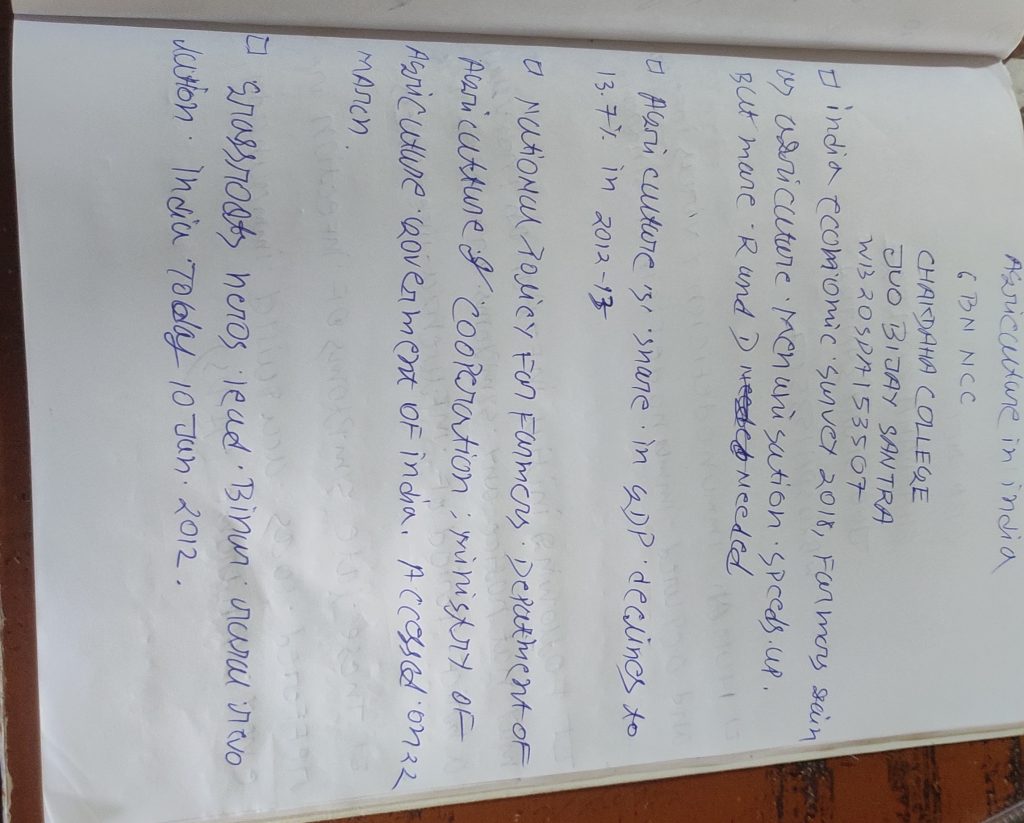 Agriculture in india
6 BN NCC
CHAKDAHA COLLEGE
JUO BIJAY SANTRA
WB20SDA153507
□ india economic survey 2018, Farmers gain
as agriculture mechanisation speeds up.
But more R and D needed
□ Agriculture's share in GDP declines to
13.7% in 2012-13
□ National Policy For Farmers. Depatment of
Agriculture & Cooperation, ministry of
Agriculture Goverment of india. Accessed on 22
march.
□ grassroots heros lead Bihar rural revo
lution. India Today 10 Jan. 2012.